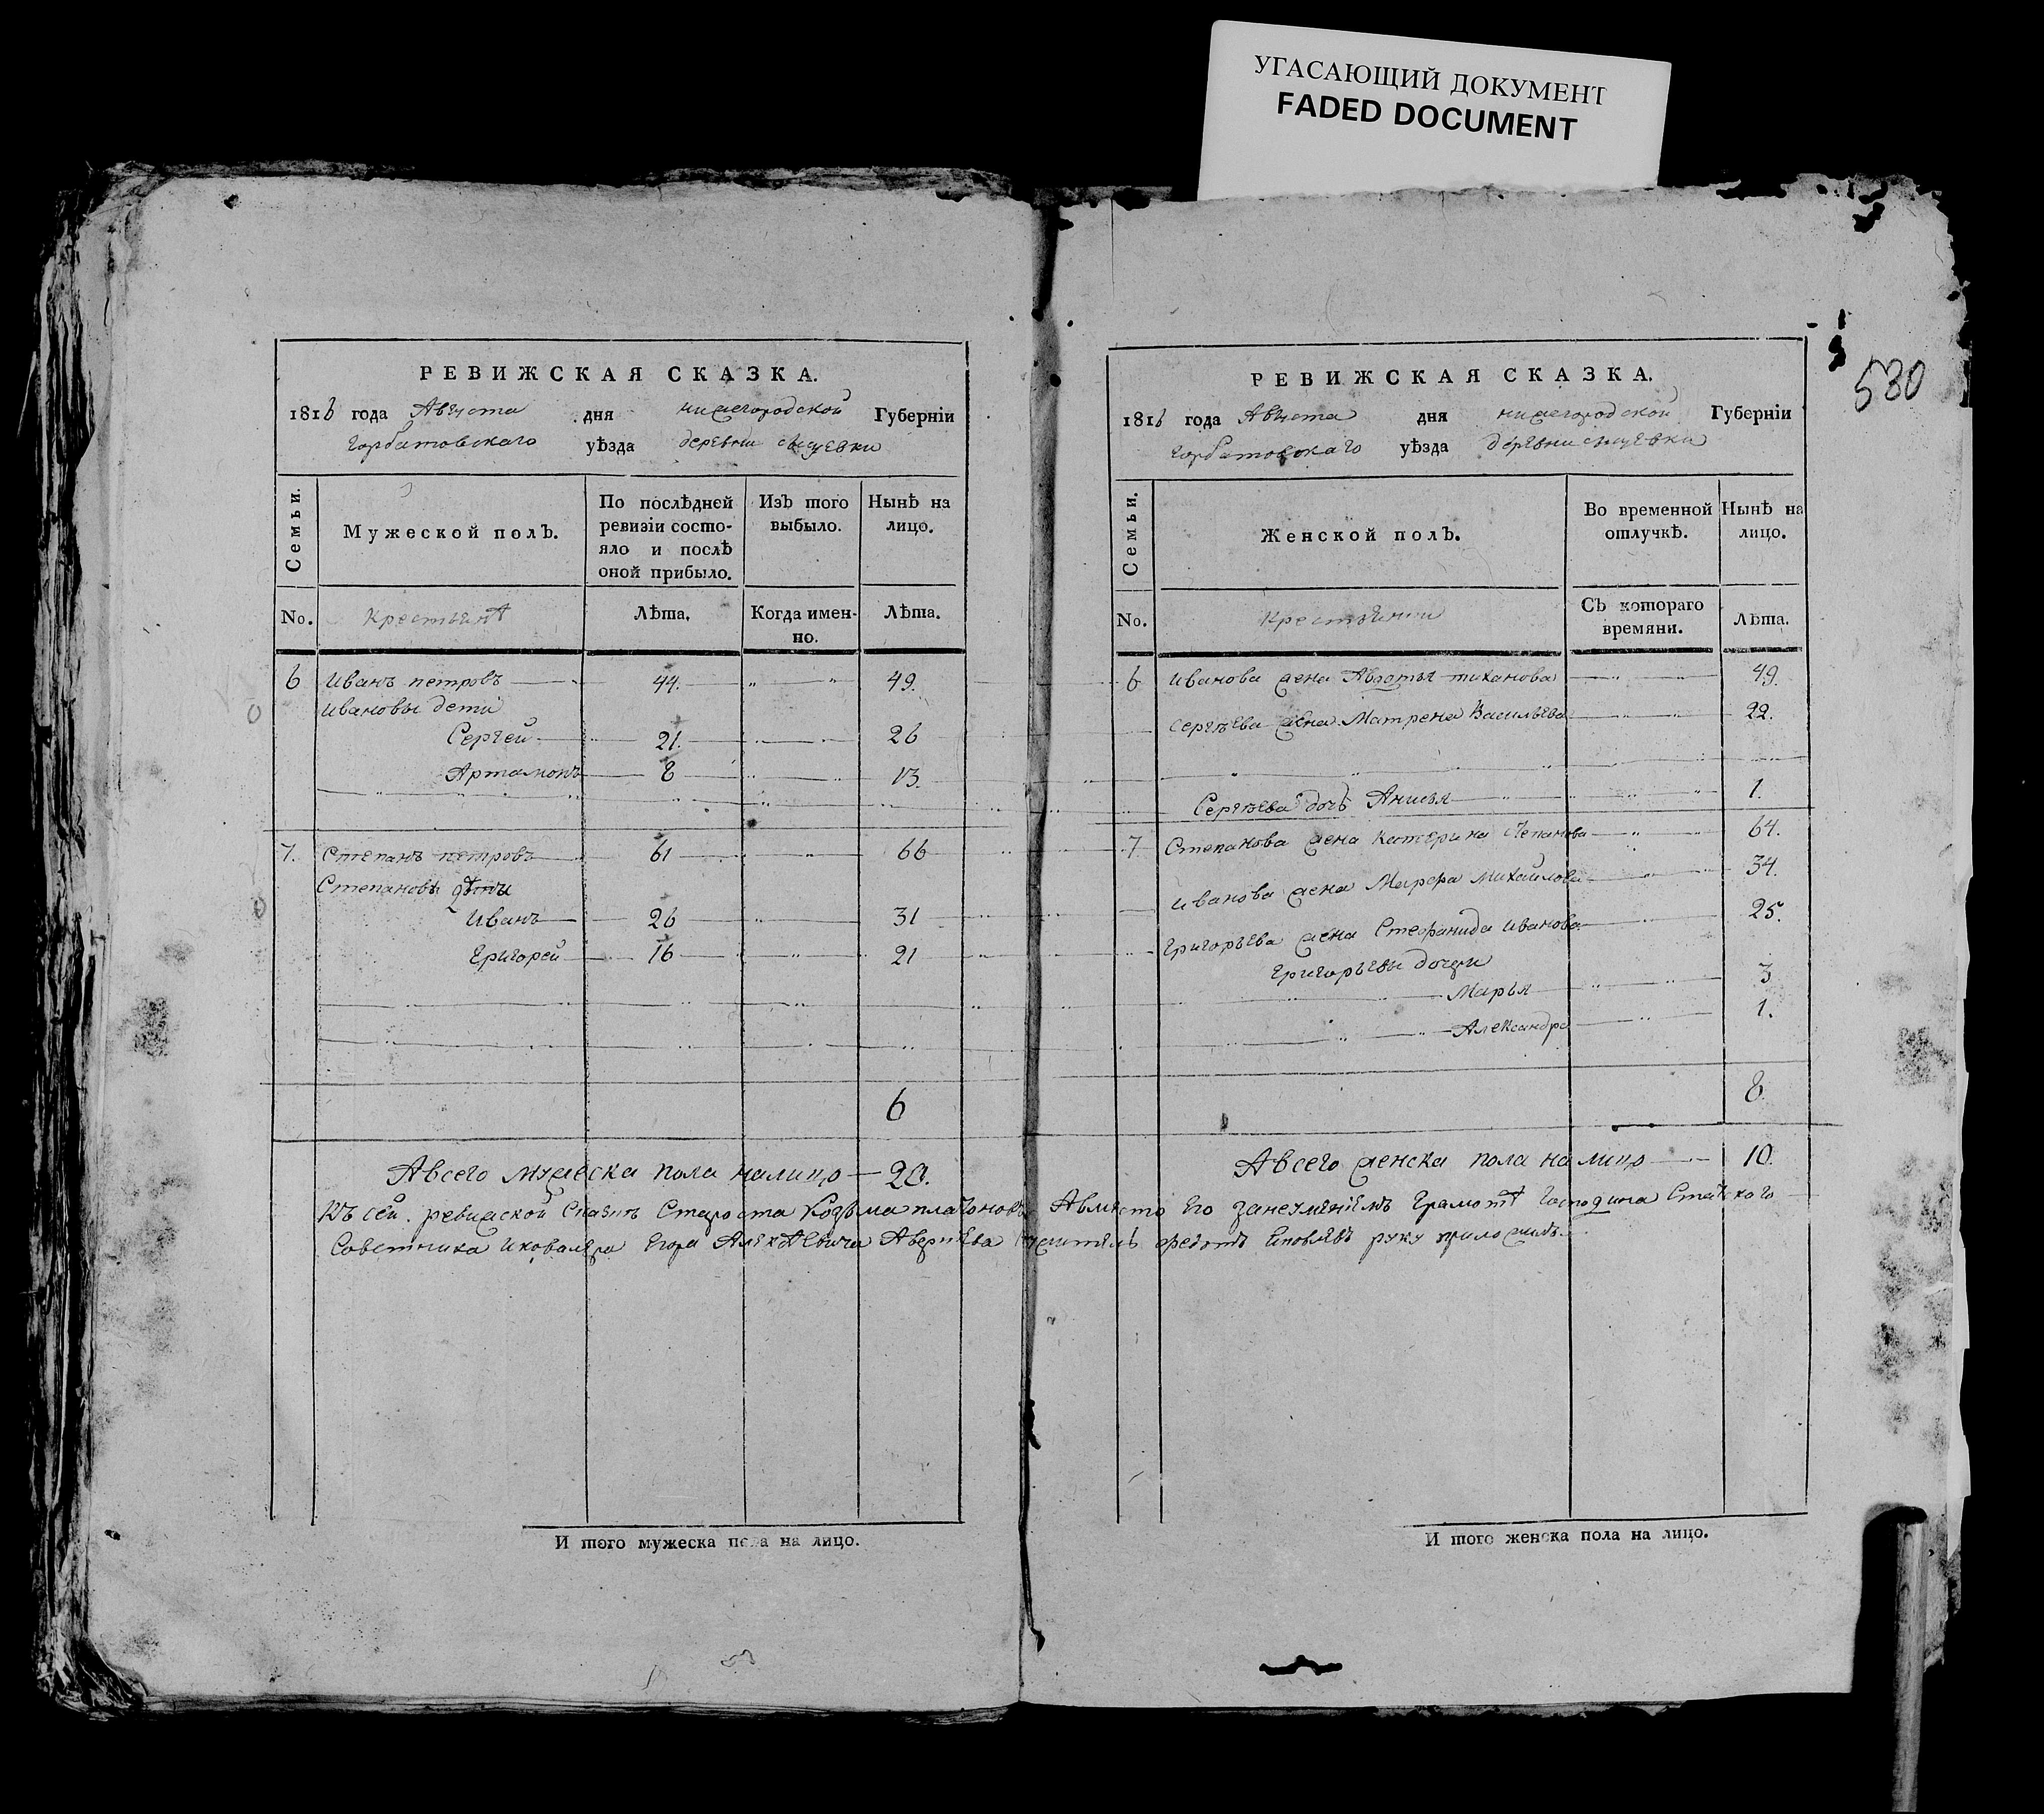 УГАСАЮЩИЙ ДОКУМЕНТ
FADED DOCUMENT
530
РЕВИЖСКАЯ СКАЗКА.
1816 года Августа дня нижегородской Губерніи
горбатовскаго уѣзда деревни
Семьи.
Мужеской полъ.
По послѣдней ревизіи состояло и послѣ оной прибыло.
Изъ того выбыло.
Нынѣ на лицо.
No. крестьянѣ Лѣта. Когда именно. Лѣта.
6 Иванъ петровъ 44. 49.
Ивановы дети
Сергей 21. 26
Артамонъ 8 13.
7. Степанъ петровъ 61 66
Степановы дѣти
Иванъ 26 31
Григорей 16 21
6
А всего мужеска пола налицо 20.
И того мужеска пола на лицо.
РЕВИЖСКАЯ СКАЗКА.
1816 года Августа дня нижегородской Губерніи
горбатовскаго уѣзда деревни
Семьи.
Женской полъ.
Во временной отлучкѣ.
Нынѣ на лицо.
No. Съ котораго времяни. Лѣта.
6 Иванова жена Авдотья тиханова 49.
Сергѣева жена Матрена Васильева 22.
Сергѣева дочь Анисья 1.
7 Степанова жена Катерина Степанова 64.
Иванова жена Марфа Михайлова 34.
Григорьева жена Стефанида Иванова 25.
Григорьевы дочери
Марья 3
Александра 1.
8.
А всего женска пола на лицо 10.
Къ сей ревижской Сказкѣ Староста Козьма платоновъ А вместо Его занеумѣніемъ Грамотѣ Господина Статского
Советника Иковалера Егора Алексѣевича руку приложилъ
И того женска пола на лицо.